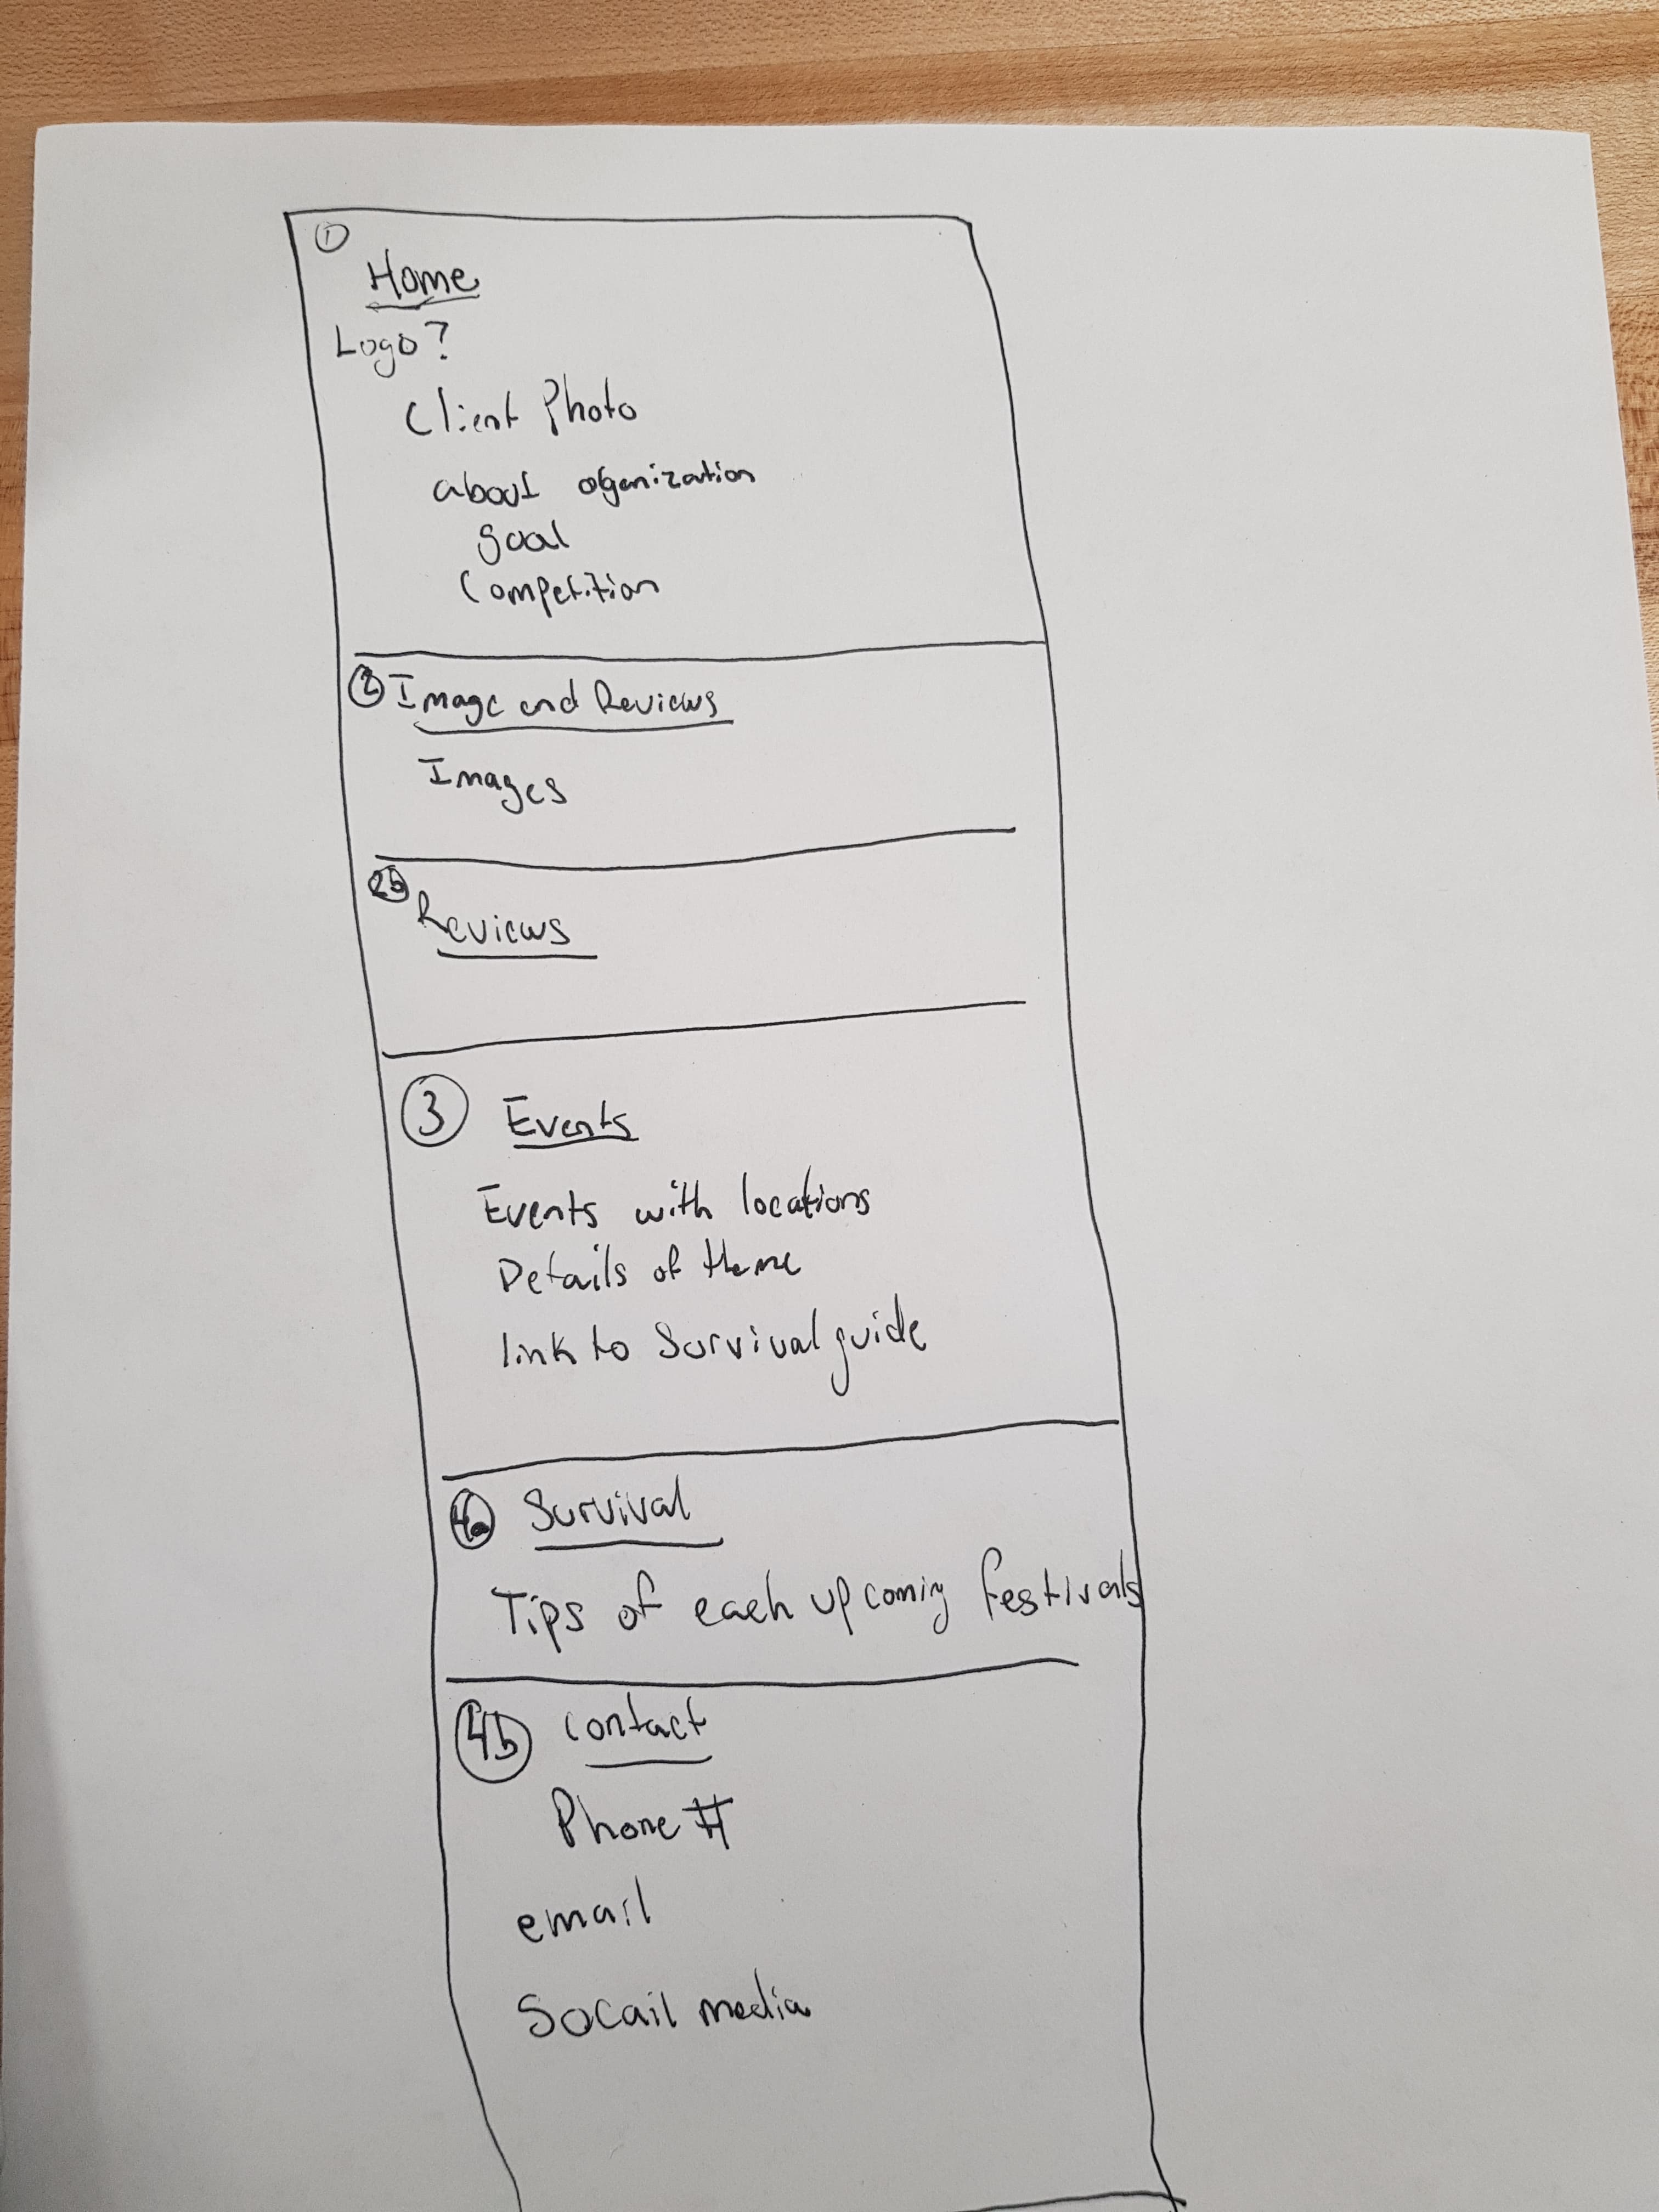 1
Home
Logo?
Client Photo
about organization
goal
Competition
2 Image and Reviews
Images
2b
Reviews
3 Events
Events with locations
Details of theme
link to Survival guide
4a Survival
Tips of each upcoming festivals
4b contact
Phone #
email
Socail media